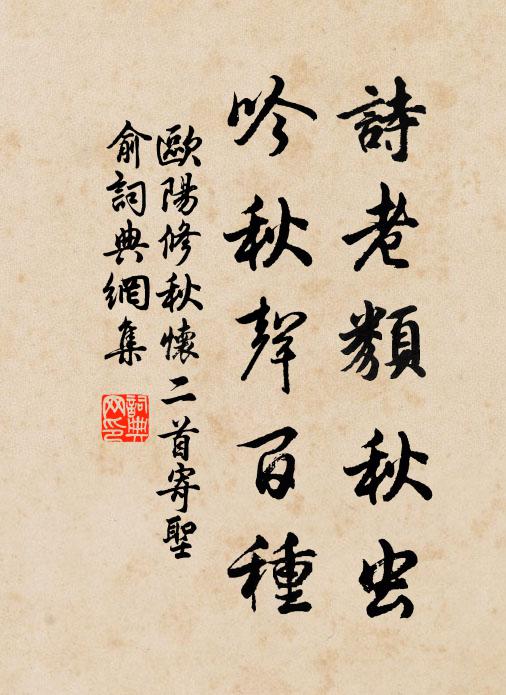 詩老類秋虫
吟秋聲百種
歐陽修秋懷二首寄聖
俞詞典網集
詞典网印